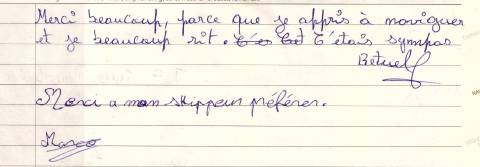 Merci beaucoup, parce que je appris à naviguer
et je beaucoup rit. C'etais sympas
Betuel
Merci a mon skippeur préférer.
Marco